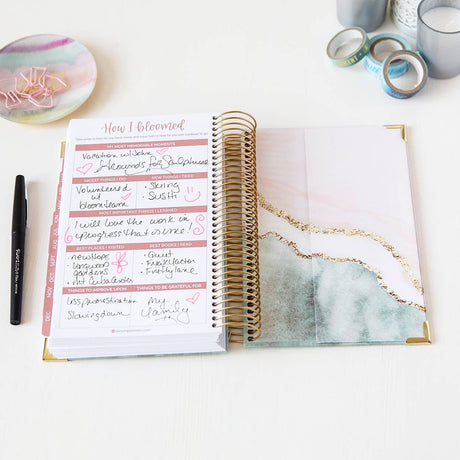 How I bloomed
MY MOST MEMORABLE MOMENTS
Vacation w/
Hounds for Sculptures
NICEST THINGS I DID
NEW THINGS I TRIED
Volunteered
w/
bloom team
• Skiing
• Sushi
MOST IMPORTANT THINGS I LEARNED
I will love the work in
progress that is me!
BEST PLACES I VISITED
BEST BOOKS I READ
• new hope
• Longwood
gardens
• Quiet
• Firefly lane
THINGS TO IMPROVE UPON
THINGS TO BE GRATEFUL FOR
Less procrastination
Slowing down
My
family
AUG
SEP
OCT
NOV
DEC